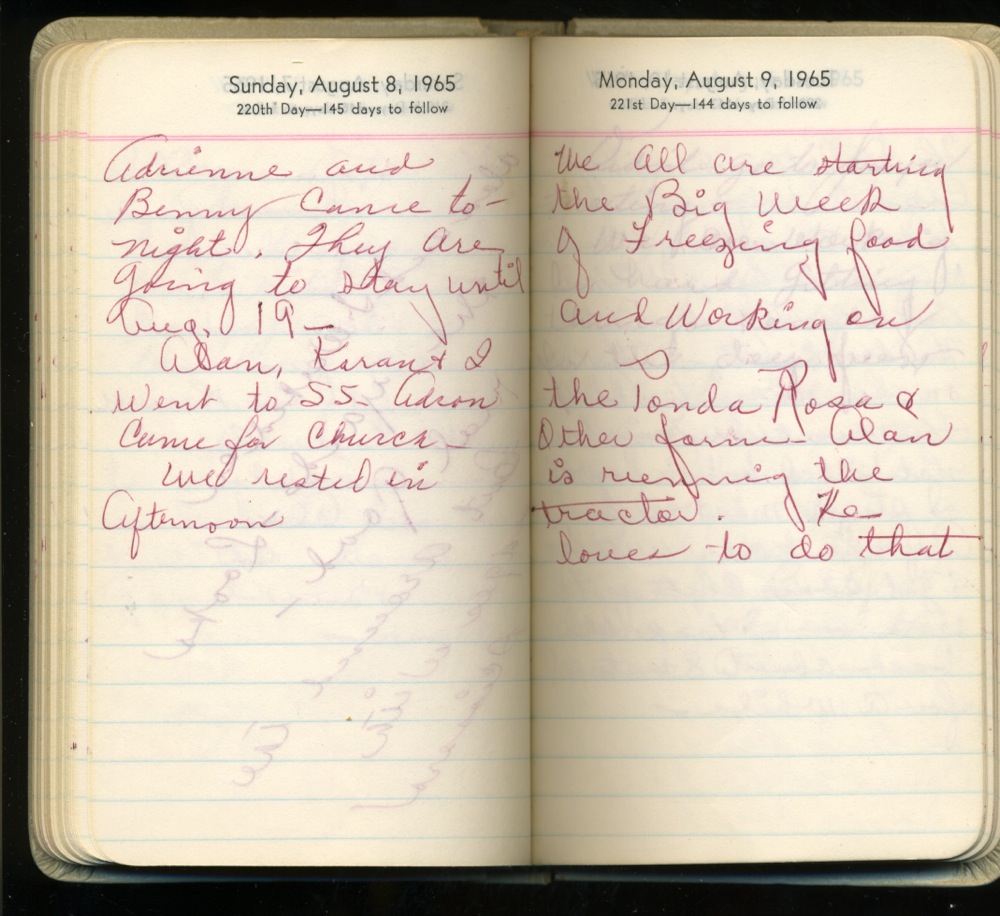 Sunday, August 8, 1965
220th Day—145 days to follow
Adrienne and
Benny Came to-
night. They Are
going to stay until
Aug. 19—
Alan, Karan & I
Went to SS. Adron
Came for Church—
We rested in
Afternoon
Monday, August 9, 1965
221st Day—144 days to follow
We All are starting
the Big Week
of Freezing food
and Working on
the Ponda Rosa &
Other farm— Alan
is running the
tractor. He
loves to do that